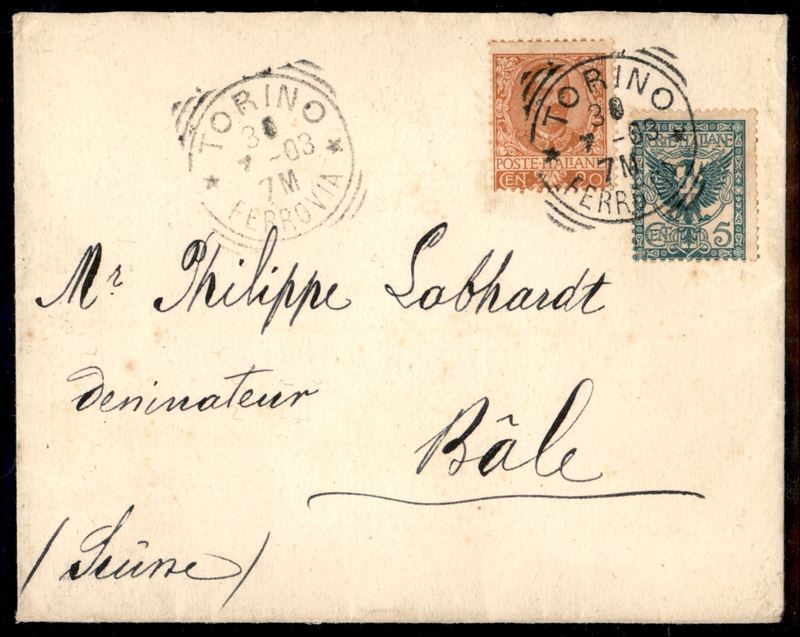 TORINO
30
-03
7M
FERROVIA
TORINO
30
-03
7M
FERROVIA
POSTE-ITALIANE
CENT. 20
POSTE ITALIANE
CENT. 5
Mr Philippe Labhardt
Deninateur
Bâle
(Suisse)